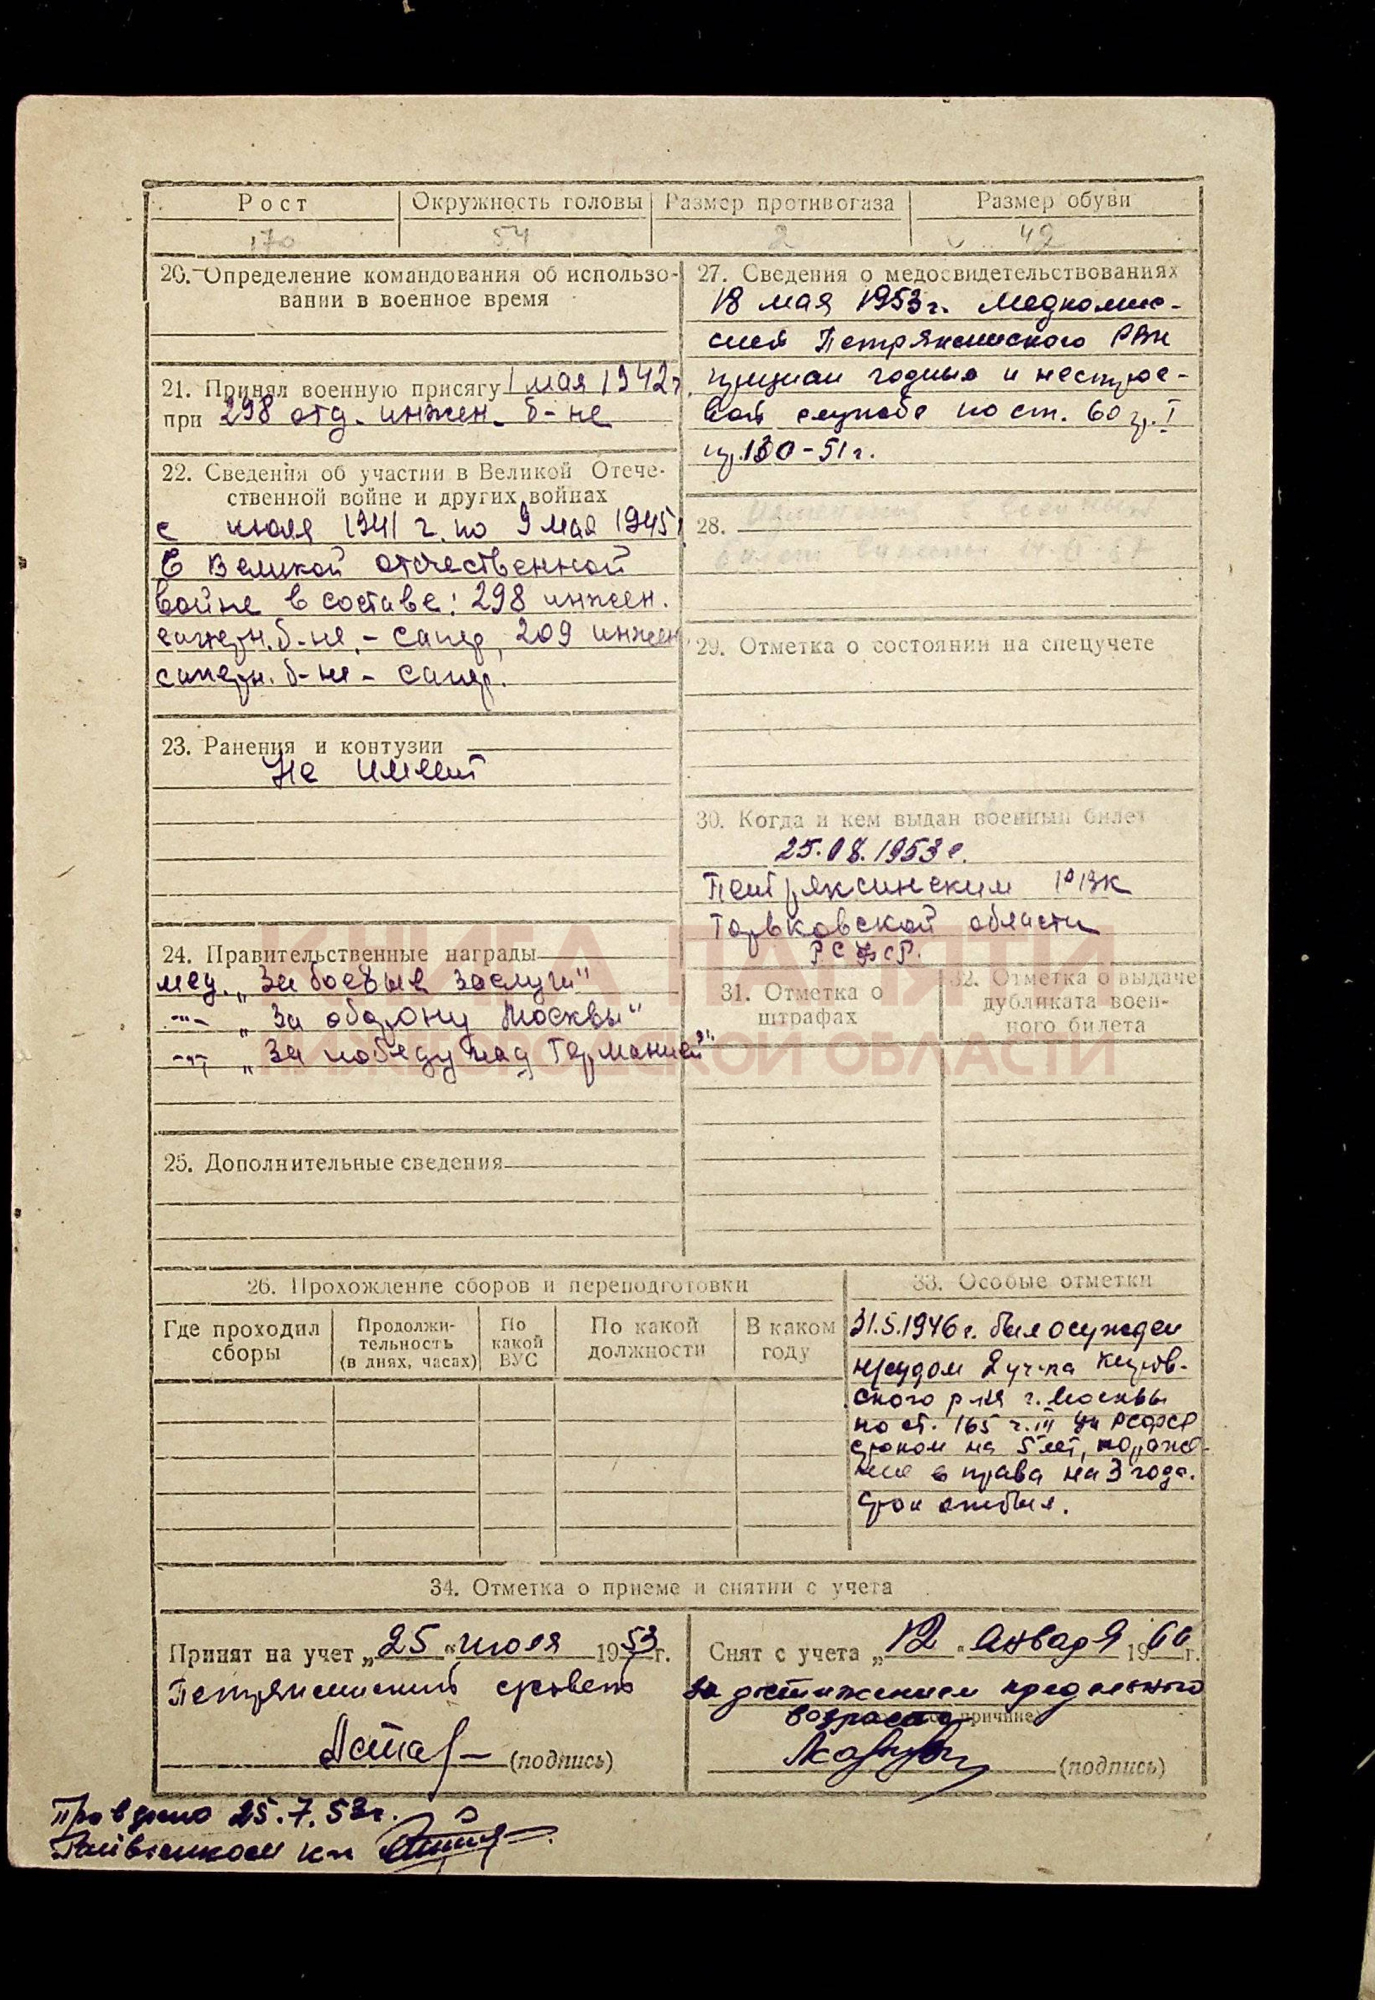 Рост
Окружность головы
Размер противогаза
Размер обуви
170
54
2
42
20. Определение командования об использо-
вании в военное время
21. Принял военную присягу 1 мая 1942 г.
при 298 отд. инжен. б-не
22. Сведения об участии в Великой Отече-
ственной войне и других войнах
с июля 1941 г. по 9 мая 1945
В Великой отечественной
войне в составе: 298 инжен.
саперн. б-не - сапер, 209 инжен
саперн. б-не - сапер.
23. Ранения и контузии
Не имеет
24. Правительственные награды
мед. „За боевые заслуги"
-"- „За оборону Москвы"
-"- „За победу над Германией"
25. Дополнительные сведения
27. Сведения о медосвидетельствованиях
18 мая 1953 г. медкомис-
сией Петряксинского РВК
признан годным к нестрое-
вой службе по ст. 60 гр. I
пр. 130-51 г.
28.
29. Отметка о состоянии на спецучете
30. Когда и кем выдан военный билет
25.08.1953 г.
Петряксинским РВК
Горьковской области
РСФСР.
31. Отметка о
штрафах
32. Отметка о выдаче
дубликата воен-
ного билета
КНИГА ПАМЯТИ
НИЖЕГОРОДСКОЙ ОБЛАСТИ
26. Прохождение сборов и переподготовки
Где проходил
сборы
Продолжи-
тельность
(в днях, часах)
По
какой
ВУС
По какой
должности
В каком
году
33. Особые отметки
31.5.1946 г. был осужден
нарсудом 2 уч-ка Киров-
ского р-на г. Москвы
по ст. 165 ч. III УК РСФСР
сроком на 5 лет, пораже-
ние в права на 3 года.
срок отбыл.
34. Отметка о приеме и снятии с учета
Принят на учет „25" июля 1953 г.
Петряксинский
(подпись)
Снят с учета „12" января 1966 г.
за достижением предельного
возраста причине
(подпись)
Проверено 25.7.53 г.